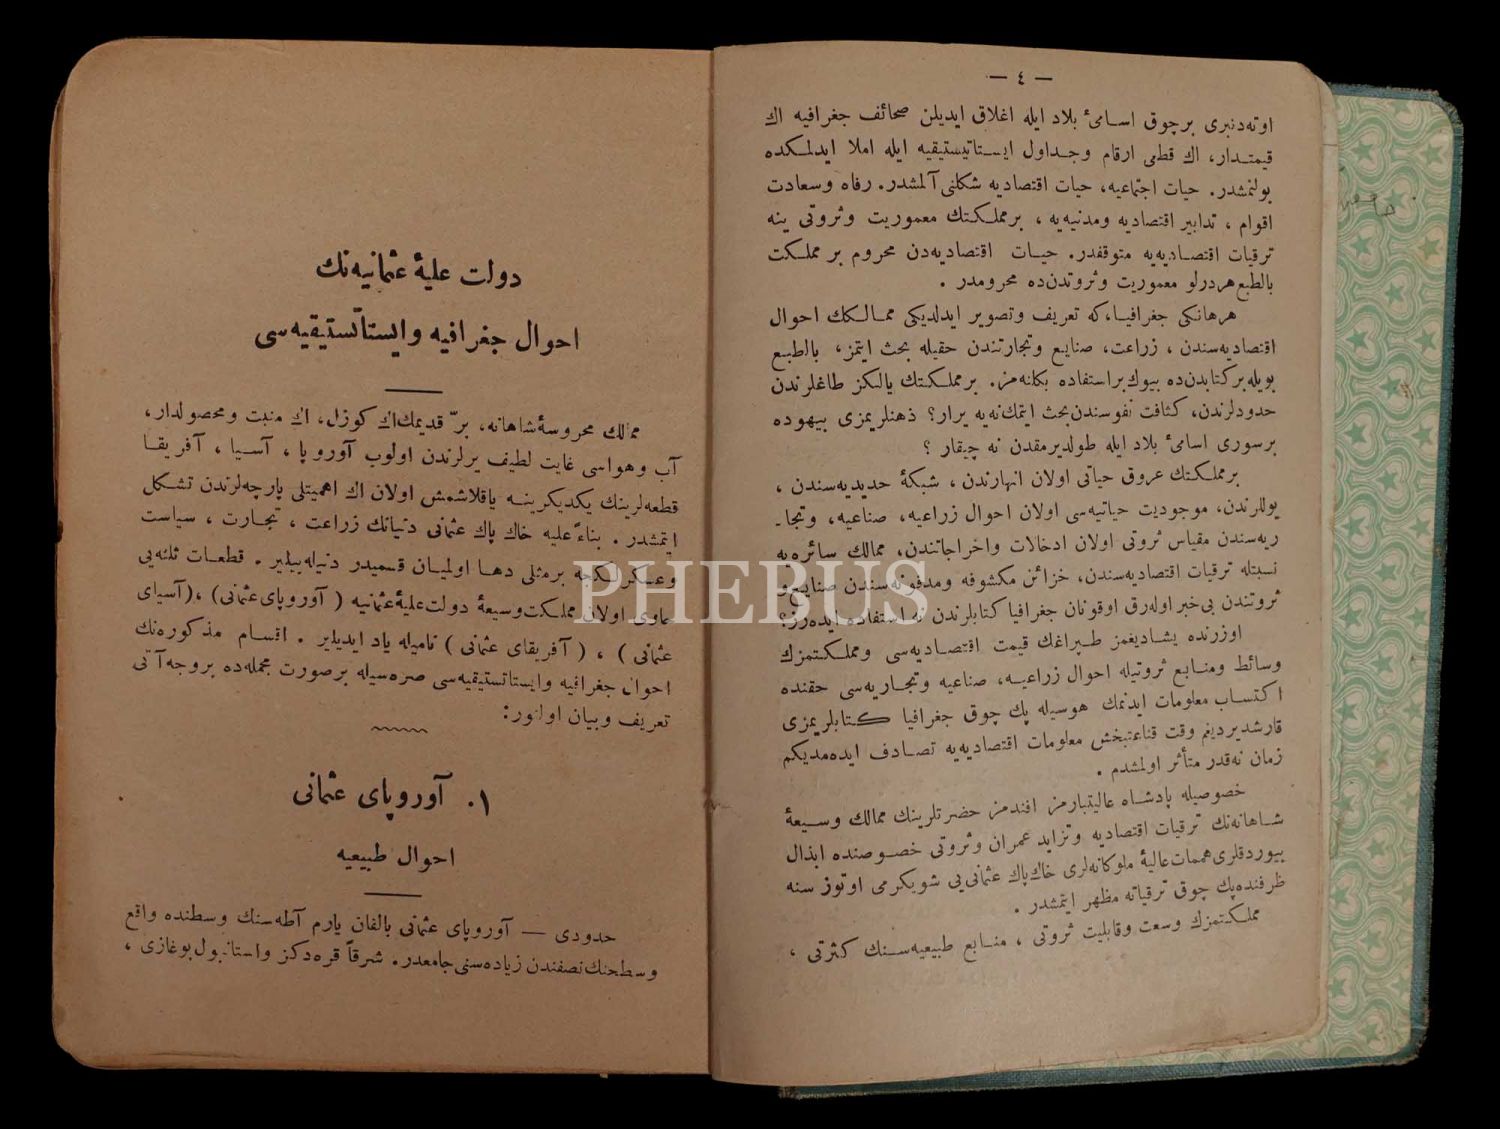 — ٤ —
اوته‌دنبری برچوق اسامیٔ بلاد ایله اغلاق ایدیلن صحائف جغرافیه اك
قیمتدار، اك قطعی ارقام وجداول ایستاتیستیقیه ایله املا ایدلمكده
بولنمشدر. حیات اجتماعیه، حیات اقتصادیه شكلنی آلمشدر. رفاه وسعادت
اقوام ، تدابیر اقتصادیه ومدنیه‌یه ، برمملكتك معموریت وثروتی ینه
ترقیات اقتصادیه‌یه متوقفدر. حیات اقتصادیه‌دن محروم بر مملكت
بالطبع هردرلو معموریت وثروتدن‌ده محرومدر .
هرهانكی جغرافیا،كه تعریف وتصویر ایدلدیكی ممالكك احوال
اقتصادیه‌سندن ، زراعت، صنایع وتجارتندن حقیله بحث ایتمز، بالطبع
بویله بركتابدن‌ده بیوك براستفاده بكلنه‌مز. برمملكتك یالكز طاغلرندن
حدودلرندن، كثافت نفوسندن بحث ایتمك نه‌یه یرار؟ ذهنلریمزی بیهوده
برسوری اسامیٔ بلاد ایله طولدیرمقدن نه چیقار ؟
برمملكتك عروق حیاتی اولان انهارندن ، شبكهٔ حدیدیه‌سندن ،
یوللرندن، موجودیت حیاتیه‌سی اولان احوال زراعیه، صناعیه، وتجا-
ریه‌سندن مقیاس ثروتی اولان ادخالات واخراجاتندن، ممالك سائره‌یه
نسبتله ترقیات اقتصادیه‌سندن، خزائن مكشوفه ومدفونه‌سندن صنایع و
ثروتندن بی‌خبر اوله‌رق اوقونان جغرافیا كتابلرندن نه استفاده ایده‌رز؟
اوزرنده یشادیغمز طپراغك قیمت اقتصادیه‌سی ومملكتمزك
وسائط ومنابع ثروتیله احوال زراعیه، صناعیه وتجاریه‌سی حقنده
اكتساب معلومات ایدنمك هوسیله پك چوق جغرافیا كتابلریمزی
قارشدیردیغم وقت قناعتبخش معلومات اقتصادیه‌یه تصادف ایده‌مدیكم
زمان نه‌قدر متأثر اولمشدم .
خصوصیله پادشاه عالیتبارمز افندمز حضرتلرینك ممالك وسیعهٔ
شاهانه‌نك ترقیات اقتصادیه وتزاید عمران وثروتی خصوصنده ابذال
بیوردقلری همماتِ عالیهٔ ملوكانه‌لری خاك پاك عثمانی‌یی شو یكرمی اوتوز سنه
ظرفنده پك چوق ترقیاته مظهر ایتمشدر .
مملكتمزك وسعت وقابلیت ثروتی ، منابع طبیعیه‌سنك كثرتی ،
دولت علیهٔ عثمانیه‌نك
احوال جغرافیه وایستاتستیقیه‌سی
ممالك محروسهٔ شاهانه، برّ قدیمك اك كوزل، اك منبت ومحصولدار،
آب وهواسی غایت لطیف یرلرندن اولوب آوروپا ، آسیا ، آفریقا
قطعه‌لرینك یكدیكرینه یاقلاشمش اولان اك اهمیتلی پارچه‌لرندن تشكل
ایتمشدر . بناءً علیه خاك پاك عثمانی دنیانك زراعت ، تجارت ، سیاست
وعسكرلكجه برمثلی دها اولمیان قسمیدر دنیله‌بیلیر . قطعات ثلثه‌یی
حاوی اولان مملكت وسیعهٔ دولت علیهٔ عثمانیه ( آوروپای عثمانی) ،(آسیای
عثمانی ) ، ( آفریقای عثمانی ) نامیله یاد ایدیلیر . اقسام مذكوره‌نك
احوال جغرافیه وایستاتستیقیه‌سی صره‌سیله برصورت مجمله‌ده بروجه آتی
تعریف وبیان اولنور:
١. آوروپای عثمانی
احوال طبیعیه
حدودی — آوروپای عثمانی بالقان یارم آطه‌سنك وسطنده واقع
وسطحنك نصفندن زیاده‌سنی جامعدر. شرقاً قره‌دكز واستانبول بوغازی ،
PHEBUS